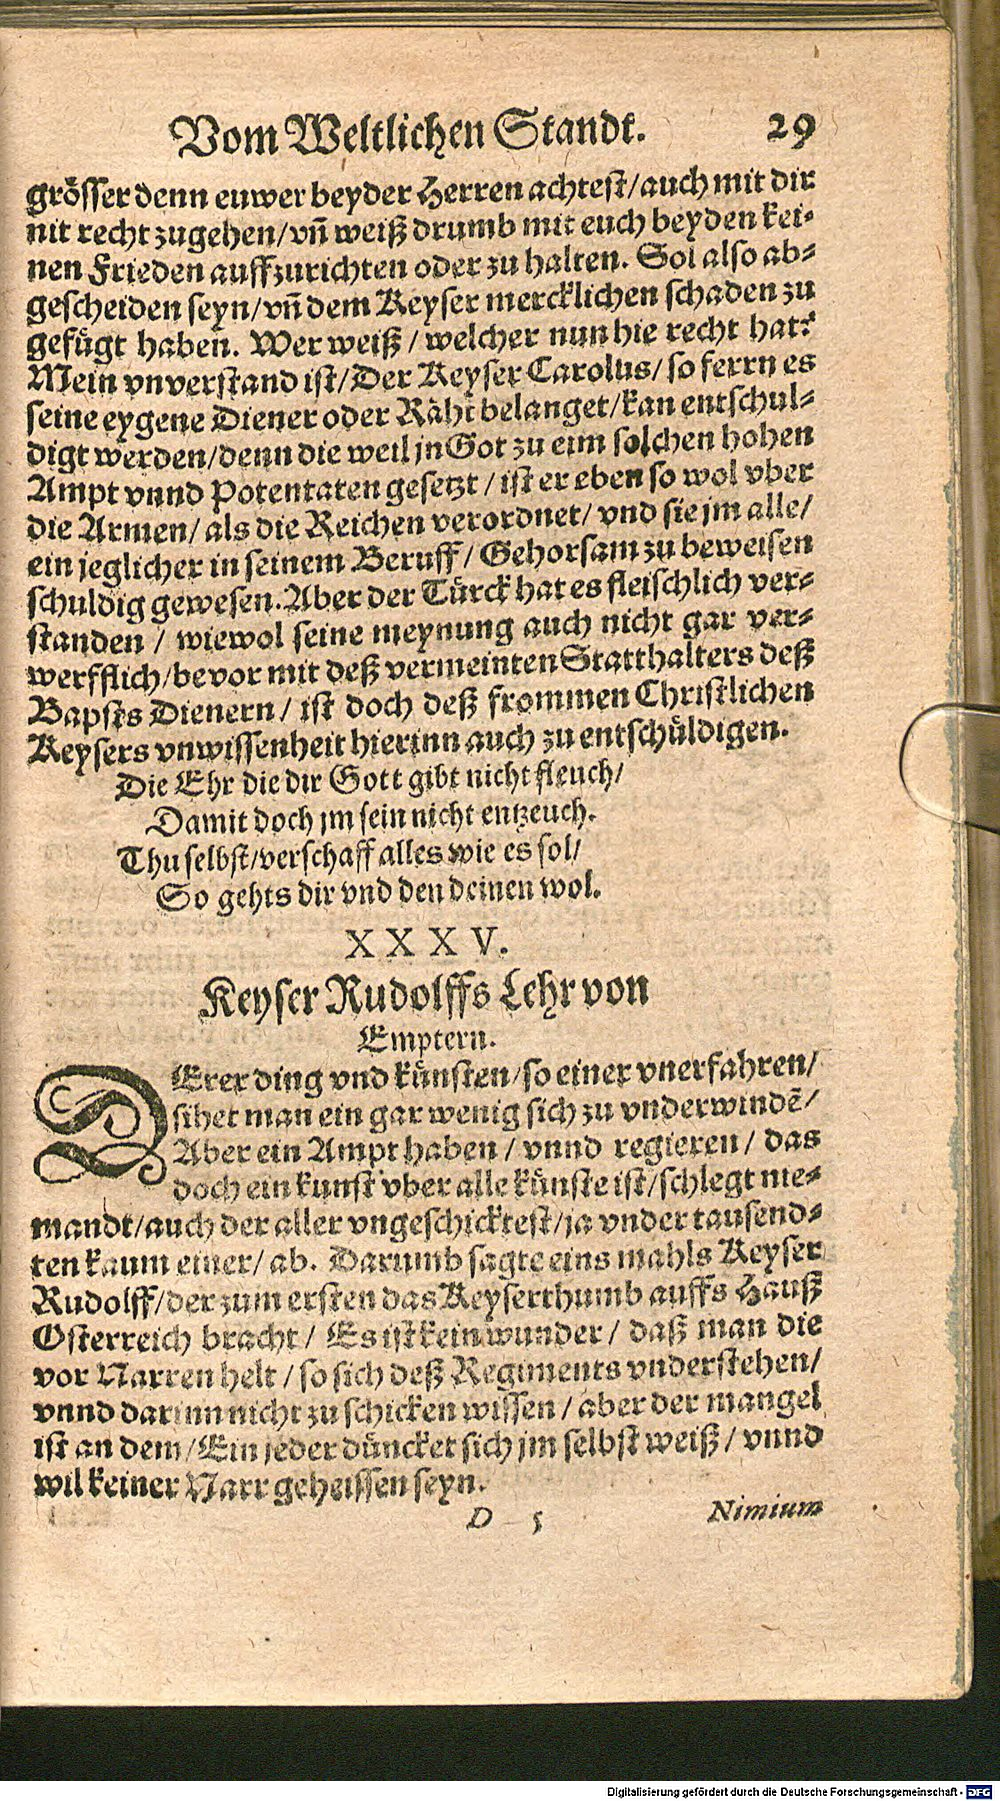 Vom Weltlichen Standt. 29
grösser denn euwer beyder Herren achtest/auch mit dir
nit recht zugehen/vn̄ weiß drumb mit euch beyden kei-
nen Frieden auffzurichten oder zu halten. Sol also ab-
gescheiden seyn/vn̄ dem Keyser mercklichen schaden zu
gefuͤgt haben. Wer weiß / welcher nun hie recht hat?
Mein vnverstand ist/Der Keyser Carolus/so ferrn es
seine eygene Diener oder Räht belanget/kan entschul-
digt werden/denn die weil jn Got zu eim solchen hohen
Ampt vnnd Potentaten gesetzt / ist er eben so wol vber
die Armen/ als die Reichen verordnet/ vnd sie jm alle/
ein jeglicher in seinem Beruff/ Gehorsam zu beweisen
schuldig gewesen. Aber der Tuͤrck hat es fleischlich ver-
standen / wiewol seine meynung auch nicht gar ver-
werfflich/bevor mit deß vermeinten Statthalters deß
Bapsts Dienern/ ist doch deß frommen Christlichen
Keysers vnwissenheit hierinn auch zu entschuͤldigen.
Die Ehr die dir Gott gibt nicht fleuch/
Damit doch jm sein nicht entzeuch.
Thu selbst/verschaff alles wie es sol/
So gehts dir vnd den deinen wol.
XXXV.
Keyser Rudolffs Lehr von
Emptern.
DErer ding vnd kuͤnsten/so einer vnerfahren/
sihet man ein gar wenig sich zu vnderwindē/
Aber ein Ampt haben / vnnd regieren/ das
doch ein kunst vber alle kuͤnste ist/schlegt nie-
mandt/auch der aller vngeschicktest/ja vnder tausend-
ten kaum einer/ ab. Darumb sagte eins mahls Keyser
Rudolff/der zum ersten das Keyserthumb auffs Hauß
Osterreich bracht/ Es ist kein wunder/ daß man die
vor Narren helt / so sich deß Regiments vnderstehen/
vnnd darinn nicht zu schicken wissen / aber der mangel
ist an dem/Ein jeder duͤncket sich jm selbst weiß / vnnd
wil keiner Narr geheissen seyn.
D 5 Nimium
Digitalisierung gefördert durch die Deutsche Forschungsgemeinschaft - DFG